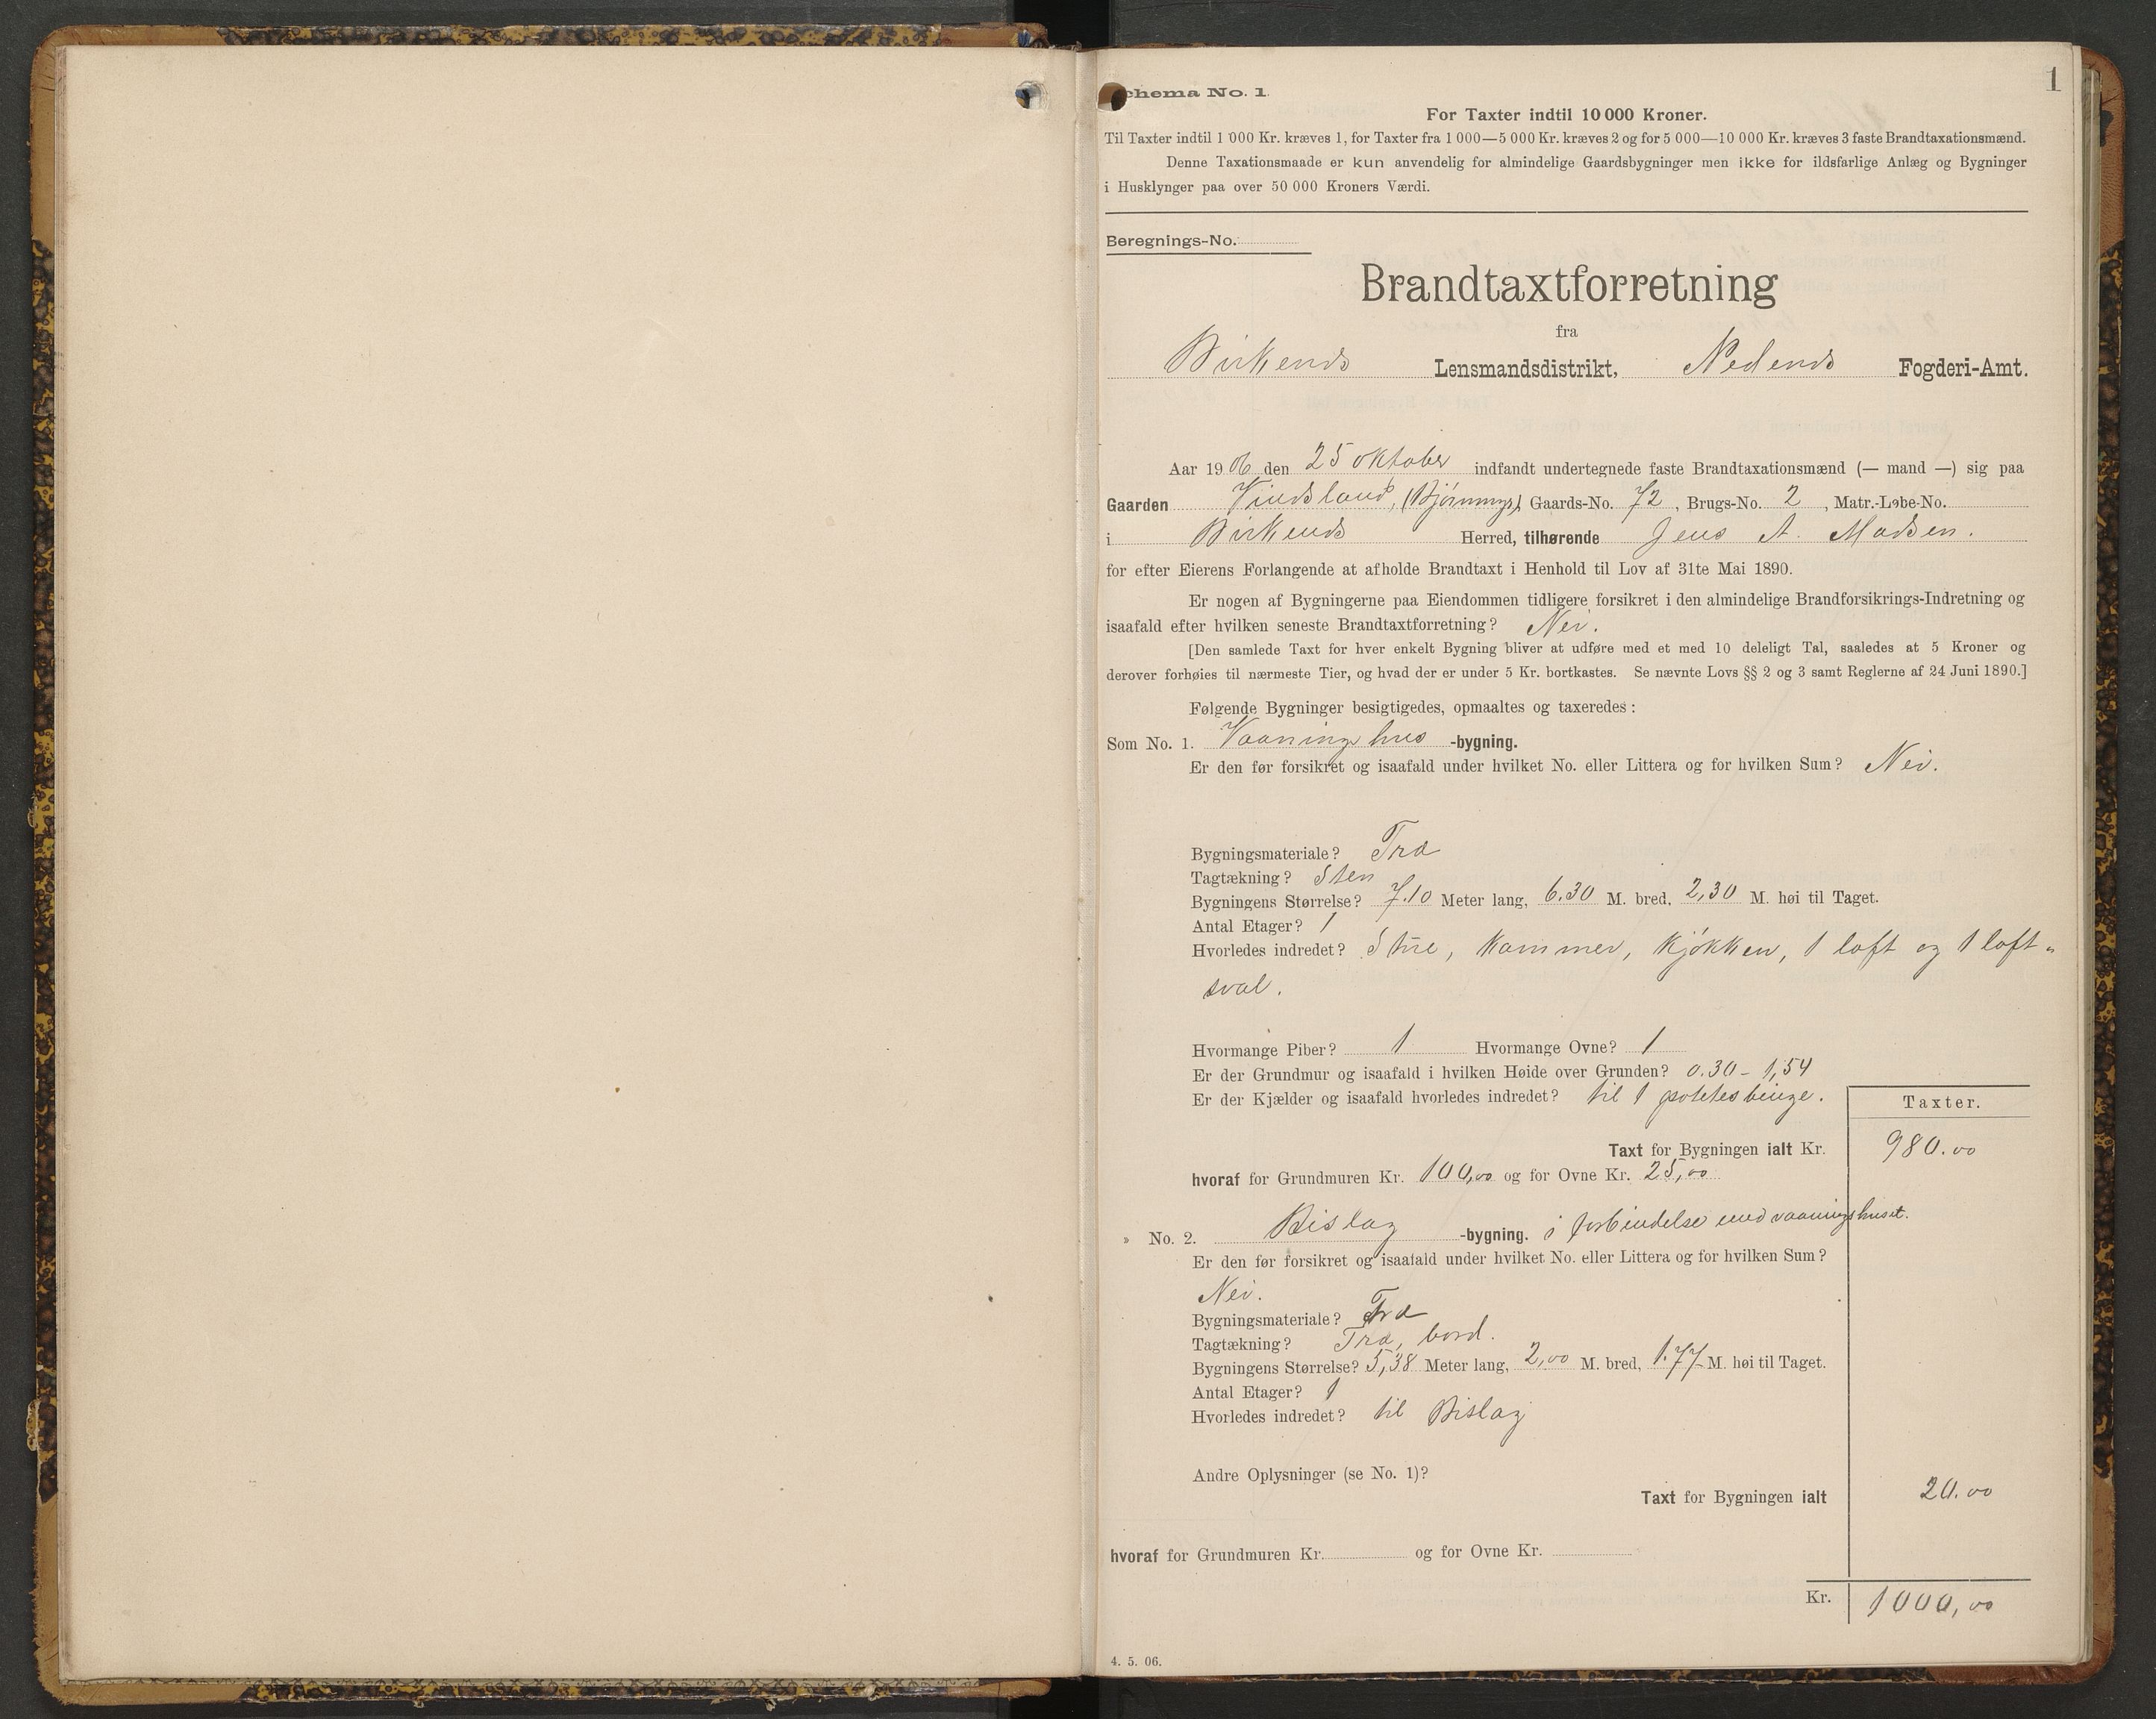 1
chema No. 1
For Taxter indtil 10 000 Kroner.
Til Taxter indtil 1 000 Kr. kræves 1, for Taxter fra 1 000—5 000 Kr. kræves 2 og for 5 000—10 000 Kr. kræves 3 faste Brandtaxationsmænd.
Denne Taxationsmaade er kun anvendelig for almindelige Gaardsbygninger men ikke for ildsfarlige Anlæg og Bygninger
i Husklynger paa over 50 000 Kroners Værdi.
Beregnings-No.
Brandtaxtforretning
fra
Birkends Lensmandsdistrikt, Nedends Fogderi-Amt.
Aar 1906 den 25 oktober indfandt undertegnede faste Brandtaxationsmænd (— mand —) sig paa
Gaarden Vindsland, Gaards-No. 72, Brugs-No. 2, Matr.-Løbe-No.
i Birkends Herred, tilhørende Jens A. Madsen.
for efter Eierens Forlangende at afholde Brandtaxt i Henhold til Lov af 31te Mai 1890.
Er nogen af Bygningerne paa Eiendommen tidligere forsikret i den almindelige Brandforsikrings-Indretning og
isaafald efter hvilken seneste Brandtaxtforretning? Nei.
[Den samlede Taxt for hver enkelt Bygning bliver at udføre med et med 10 deleligt Tal, saaledes at 5 Kroner og
derover forhøies til nærmeste Tier, og hvad der er under 5 Kr. bortkastes. Se nævnte Lovs §§ 2 og 3 samt Reglerne af 24 Juni 1890.]
Følgende Bygninger besigtigedes, opmaaltes og taxeredes:
Som No. 1. Vaaninghus -bygning.
Er den før forsikret og isaafald under hvilket No. eller Littera og for hvilken Sum? Nei.
Bygningsmateriale? Træ
Tagtækning? Sten
Bygningens Størrelse? 7.10 Meter lang, 6.30 M. bred, 2,30 M. høi til Taget.
Antal Etager? 1
Hvorledes indredet? Stue, Kammer, Kjøkken, 1 loft og 1 loft-
sval.
Hvormange Piber? 1 Hvormange Ovne? 1
Er der Grundmur og isaafald i hvilken Høide over Grunden? 0.30 - 1,54
Er der Kjælder og isaafald hvorledes indredet? til 1 potetesbinge.
Taxter.
Taxt for Bygningen ialt Kr. 980.00
hvoraf for Grundmuren Kr. 100,00 og for Ovne Kr. 25,00
» No. 2. Bislag -bygning. i forbindelse med vaaningshuset.
Er den før forsikret og isaafald under hvilket No. eller Littera og for hvilken Sum?
Nei.
Bygningsmateriale? Træ
Tagtækning? Træ, bord.
Bygningens Størrelse? 5,38 Meter lang, 2,00 M. bred, 1.77 M. høi til Taget.
Antal Etager? 1
Hvorledes indredet? til Bislag
Andre Oplysninger (se No. 1)?
Taxt for Bygningen ialt 20.00
hvoraf for Grundmuren Kr. og for Ovne Kr.
Kr. 1000,00
4. 5. 06.